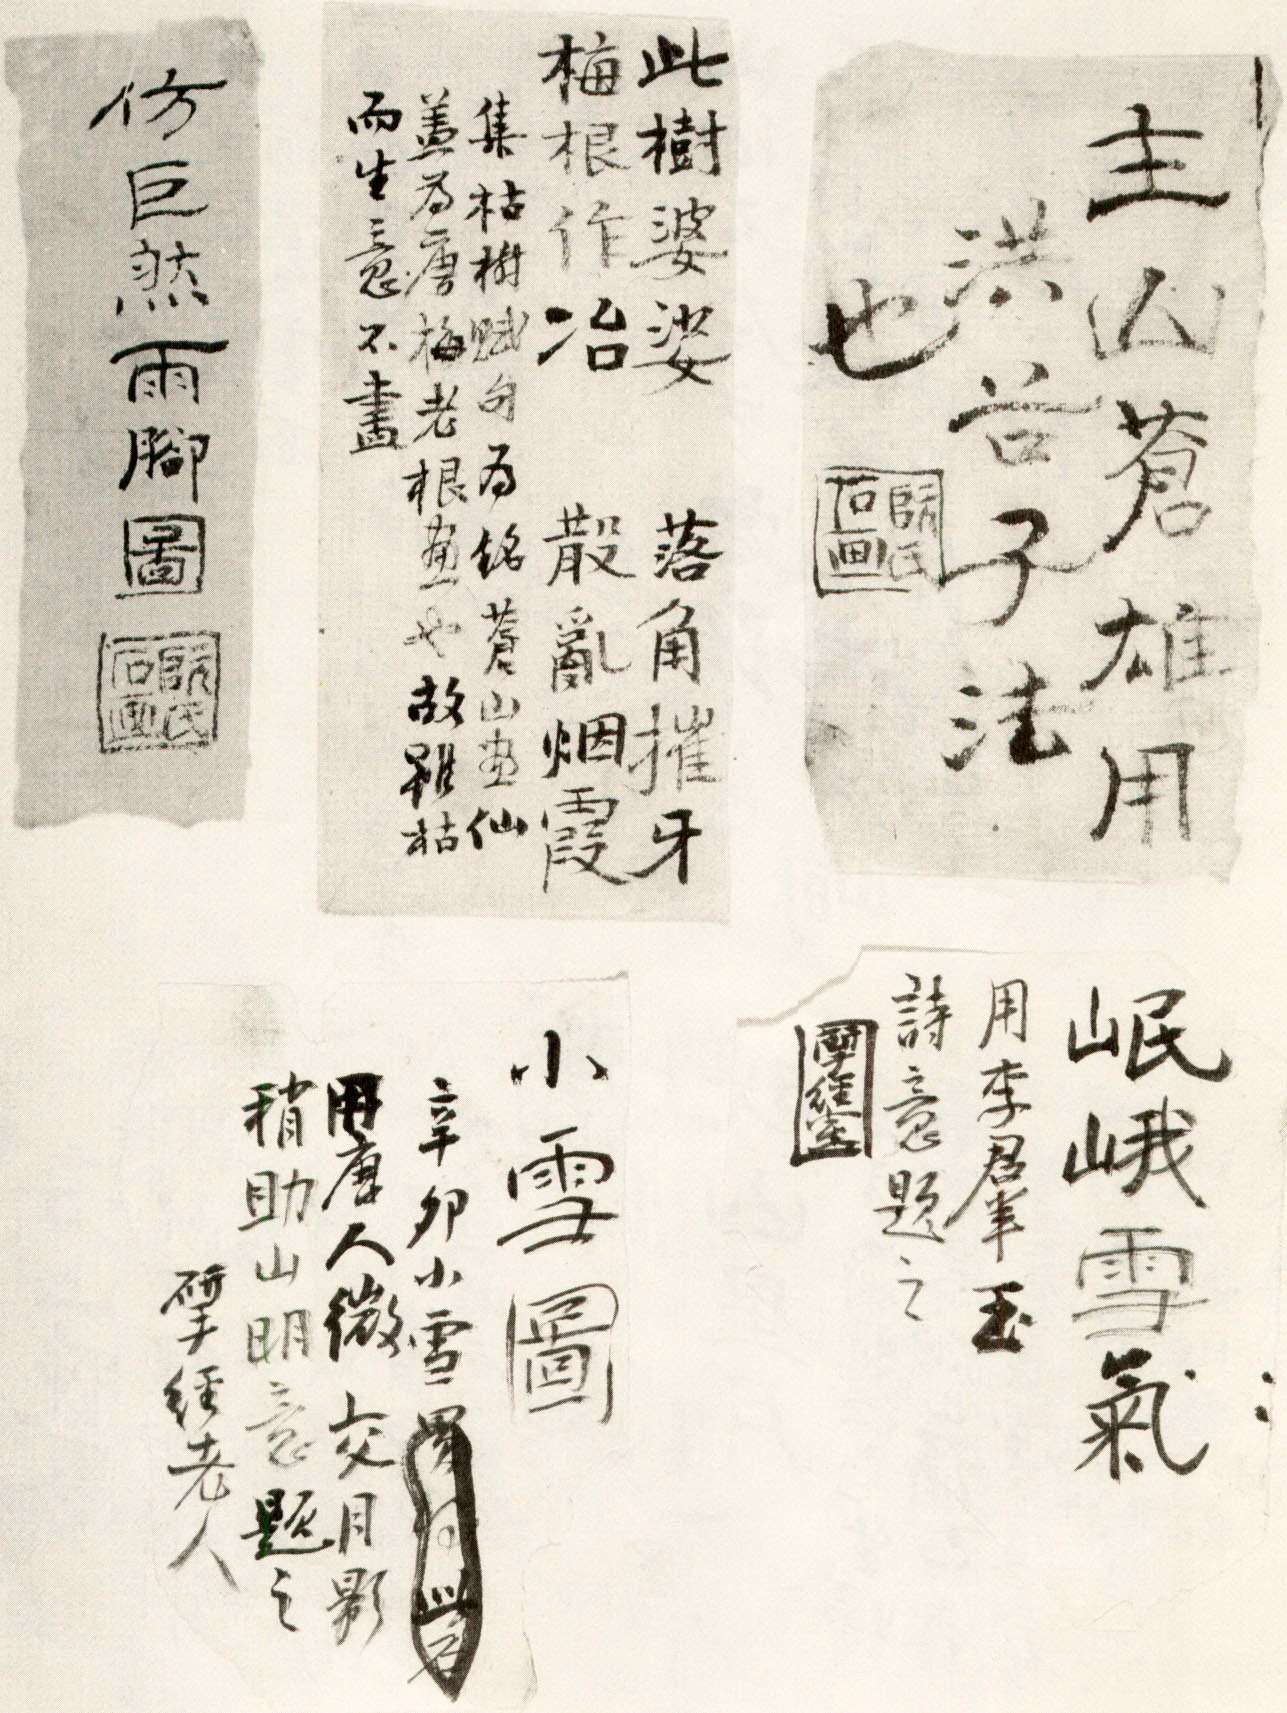 主山蒼雄用
洪谷子法
也
阮氏
石畫
此樹婆娑 落角摧牙
梅根作冶 散亂烟霞
集枯樹賦句為銘蒼山畫仙
蓋為唐梅老根畫也故雖枯
而生意不盡
仿巨然雨腳圖
阮氏
石畫
岷峨雪氣
用李君峯玉
詩意題之
揅經室
小雪圖
辛卯小雪
用唐人微雪交月影
稍助山明意題之
揅經老人